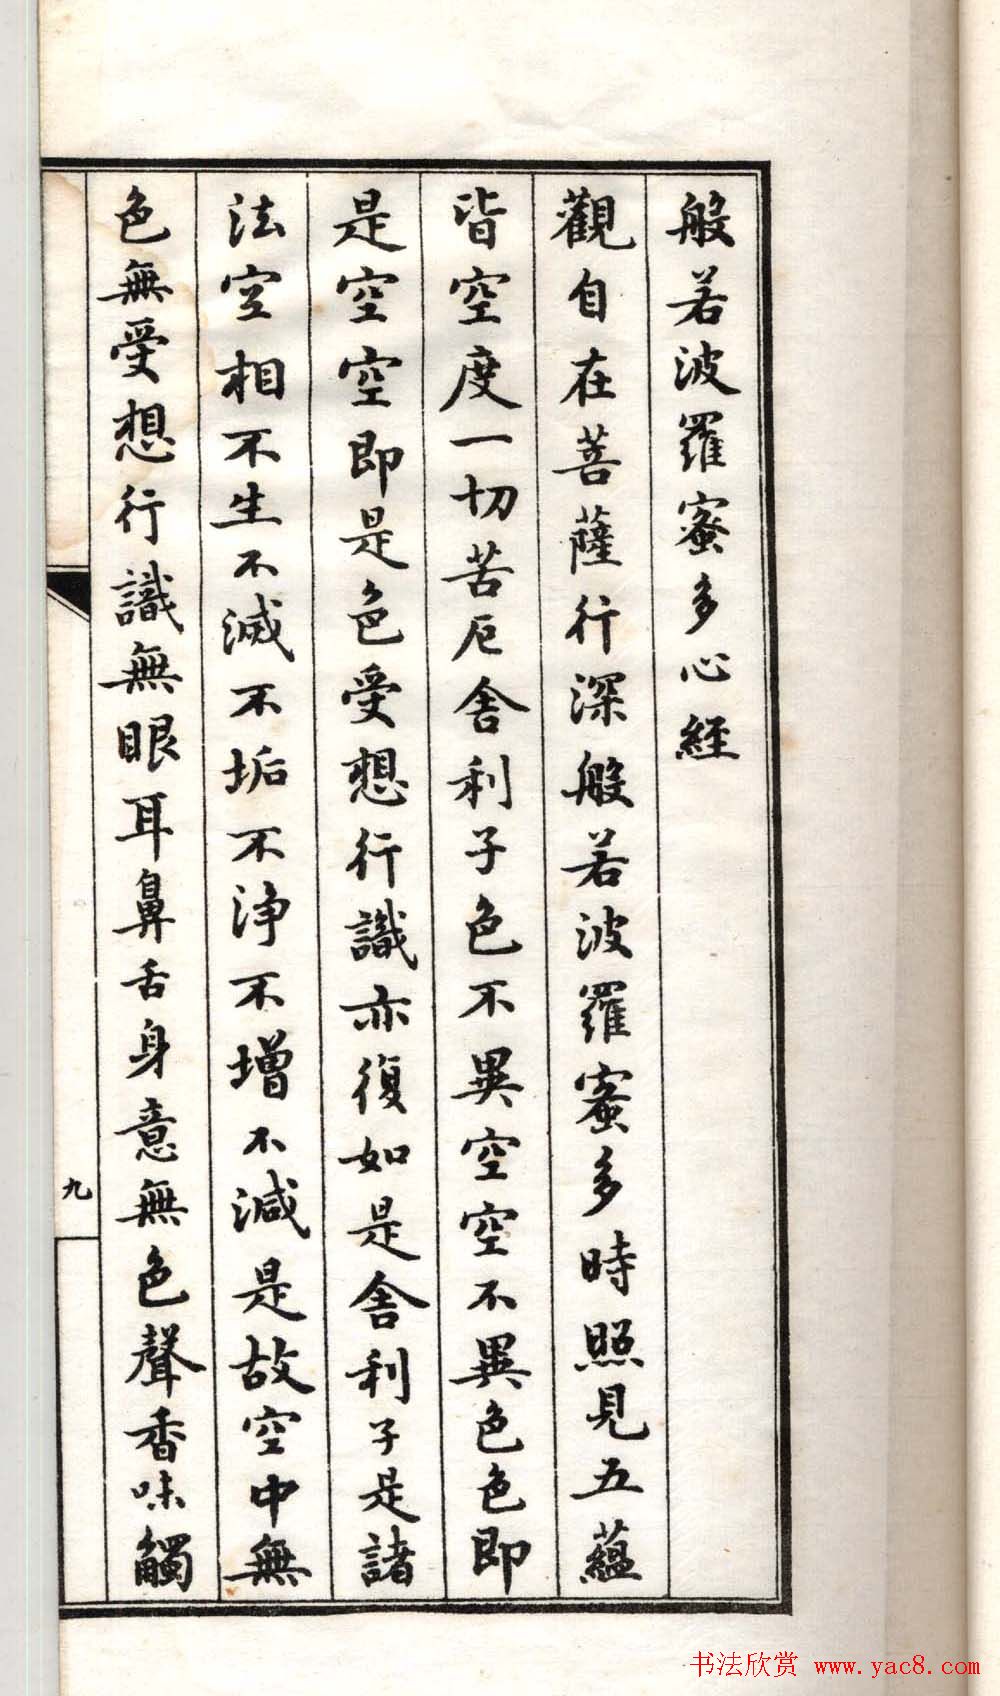 般若波羅蜜多心經
觀自在菩薩行深般若波羅蜜多時照見五蘊
皆空度一切苦厄舍利子色不異空空不異色色即
是空空即是色受想行識亦復如是舍利子是諸
法空相不生不滅不垢不淨不增不減是故空中無
色無受想行識無眼耳鼻舌身意無色聲香味觸
九
书法欣赏 www.yac8.com